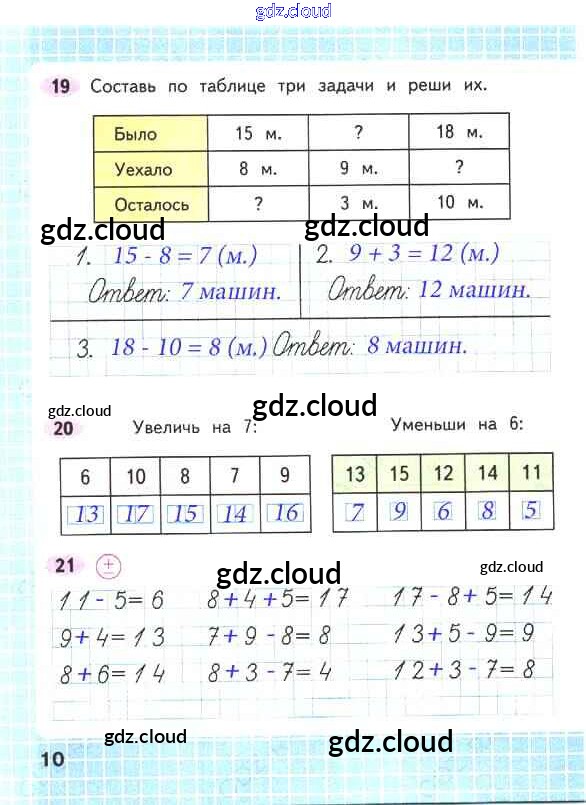 gdz.cloud
19 Составь по таблице три задачи и реши их.
Было 15 м. ? 18 м.
Уехало 8 м. 9 м. ?
Осталось ? 3 м. 10 м.
gdz.cloud gdz.cloud
1. 15 - 8 = 7 (м.) 2. 9 + 3 = 12 (м.)
Ответ: 7 машин. Ответ: 12 машин.
3. 18 - 10 = 8 (м.) Ответ: 8 машин.
gdz.cloud gdz.cloud
20 Увеличь на 7: Уменьши на 6:
6 10 8 7 9 13 15 12 14 11
13 17 15 14 16 7 9 6 8 5
21 ± gdz.cloud gdz.cloud
11 - 5 = 6 8 + 4 + 5 = 17 17 - 8 + 5 = 14
9 + 4 = 13 7 + 9 - 8 = 8 13 + 5 - 9 = 9
8 + 6 = 14 8 + 3 - 7 = 4 12 + 3 - 7 = 8
gdz.cloud gdz.cloud
10